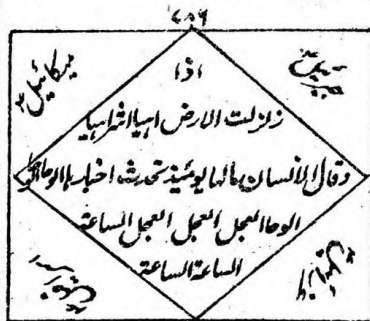 ۷۸۶
میکائیل
جبرائیل
اذا
زلزلت الارض اہیا اشراہیا
وقال الانسان مالہا یومئیذ تحدث اخبارہا الوحا
الوحا العجل العجل العجل الساعة
الساعة الساعة